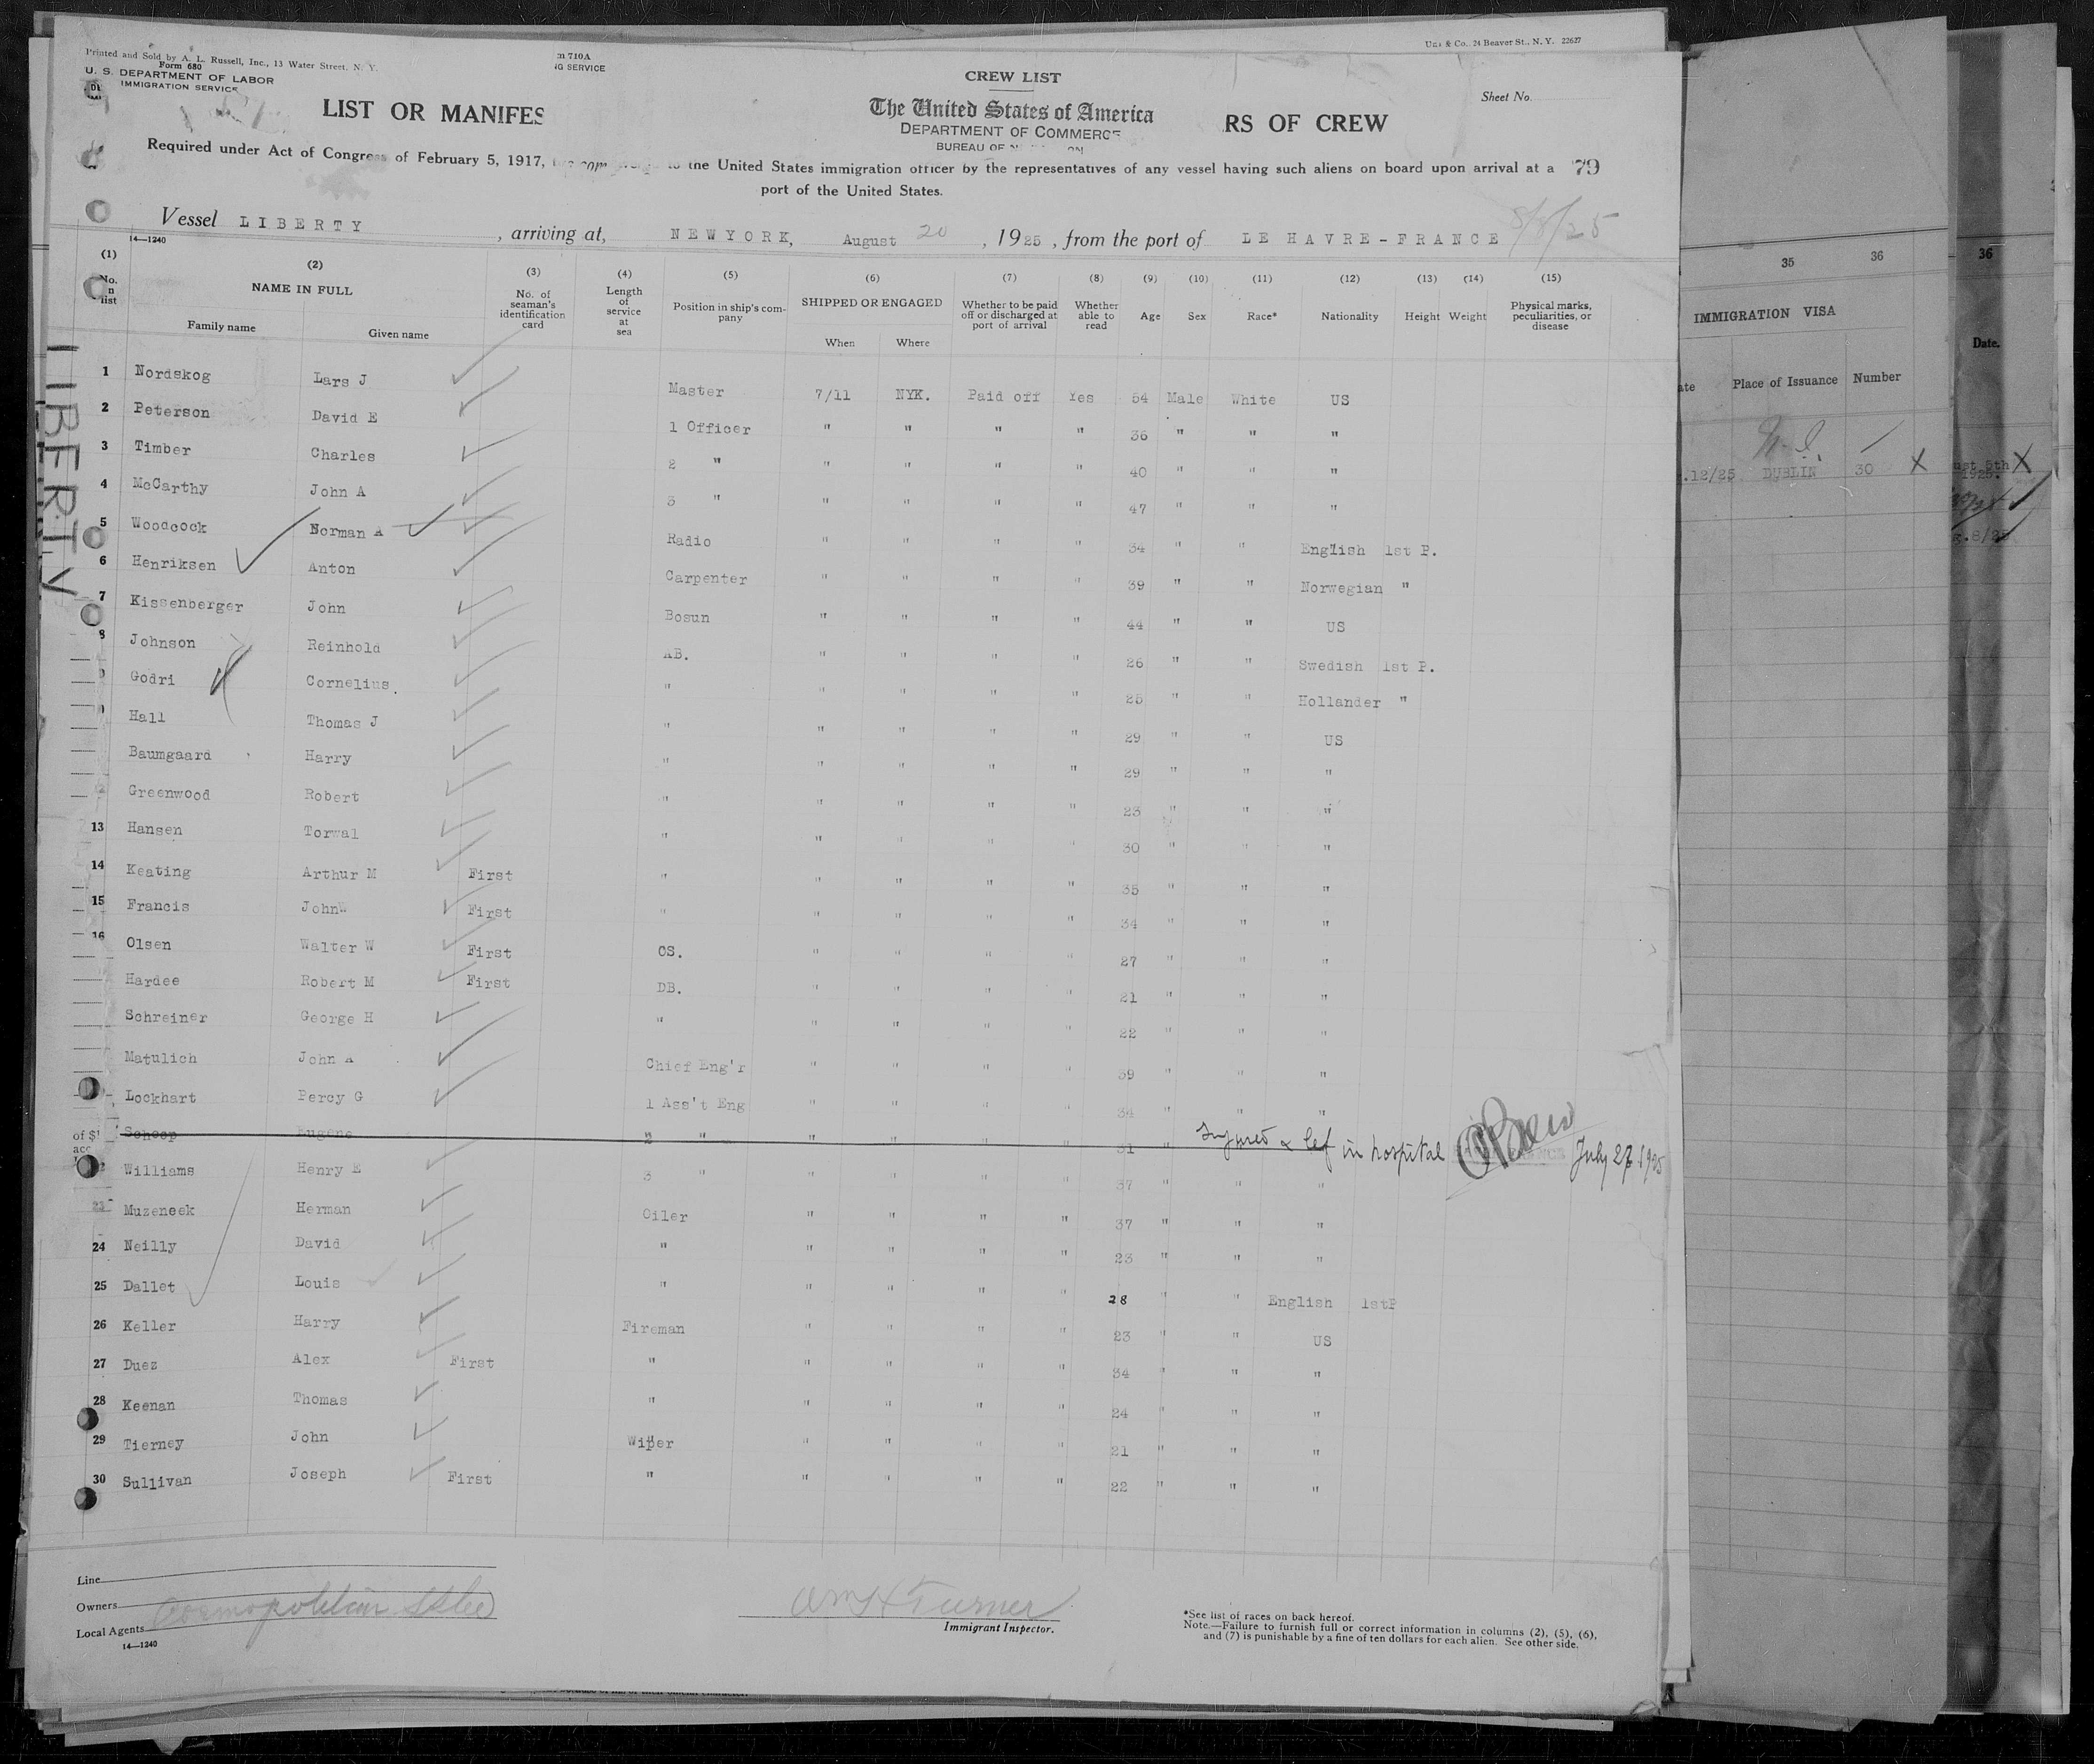 Printed and Sold by A. L. Russell, Inc., 13 Water Street, N. Y.
Form 680
U. S. DEPARTMENT OF LABOR
IMMIGRATION SERVICE
m 710A
IG SERVICE
& Co., 24 Beaver St., N. Y. 22627
CREW LIST
Sheet No.
LIST OR MANIFES
The United States of America
RS OF CREW
DEPARTMENT OF COMMERCE
BUREAU OF
Required under Act of Congress of February 5, 1917, to the United States immigration officer by the representatives of any vessel having such aliens on board upon arrival at a
port of the United States.
79
Vessel LIBERTY, arriving at, NEWYORK, August 20, 1925, from the port of LE HAVRE-FRANCE 8/8/25
14—1240
(1) (2) (3) (4) (5) (6) (7) (8) (9) (10) (11) (12) (13) (14) (15)
No. n list NAME IN FULL Family name Given name No. of seaman's identification card Length of service at sea Position in ship's company SHIPPED OR ENGAGED When Where Whether to be paid off or discharged at port of arrival Whether able to read Age Sex Race* Nationality Height Weight Physical marks, peculiarities, or disease
LIBERTY
1 Nordskog Lars J Master 7/11 NYK. Paid off Yes 54 Male White US
2 Peterson David E 1 Officer " " " " 36 " " "
3 Timber Charles 2 " " " " " 40 " " "
4 McCarthy John A 3 " " " " " 47 " " "
5 Woodcock Norman A Radio " " " " 34 " " English 1st P.
6 Henriksen Anton Carpenter " " " " 39 " " Norwegian "
7 Kissenberger John Bosun " " " " 44 " " US
8 Johnson Reinhold AB. " " " " 26 " " Swedish 1st P.
Godri Cornelius. " " " " " 25 " " Hollander "
Hall Thomas J " " " " " 29 " " US
Baumgaard Harry " " " " " 29 " " "
Greenwood Robert " " " " " 23 " " "
13 Hansen Torwal " " " " " 30 " " "
14 Keating Arthur M First " " " " " 35 " " "
15 Francis JohnW First " " " " " 34 " " "
16 Olsen Walter W First OS. " " " " 27 " " "
Hardee Robert M First DB. " " " " 21 " " "
Schreiner George H " " " " " 22 " " "
Matulich John A Chief Eng'r " " " " 39 " " "
Lockhart Percy G 1 Ass't Eng " " " " 34 " " "
of $ Schoop Eugene 2 " " " " " 31 " Injured & lef in hospital July 27 1925
Williams Henry E 3 " " " " " 37 " " "
23 Muzeneek Herman Oiler " " " " 37 " " "
24 Neilly David " " " " " 23 " " "
25 Dallet Louis " " " " " 28 " " English 1stP
26 Keller Harry Fireman " " " " 23 " " US
27 Duez Alex First " " " " " 34 " " "
28 Keenan Thomas " " " " " 24 " " "
29 Tierney John Wiper " " " " 21 " " "
30 Sullivan Joseph First " " " " " 22 " " "
Line
Owners
Local Agents
Cosmopolitan
14—1240
Wm H Turner
Immigrant Inspector.
*See list of races on back hereof.
Note.—Failure to furnish full or correct information in columns (2), (5), (6),
and (7) is punishable by a fine of ten dollars for each alien. See other side.
35 36
IMMIGRATION VISA
ate Place of Issuance Number
.12/25 DUBLIN 30 X
36
Date.
ust 5th X
1925.
g.8/25